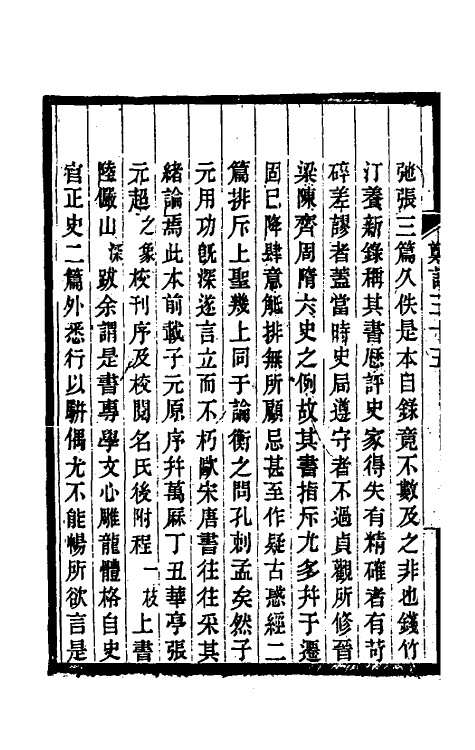 鄭記三十五
弛張三篇久佚是本自錄竟不數及之非也錢竹
汀養新錄稱其書歷評史家得失有精確者有苛
碎差謬者蓋當時史局遵守者不過貞觀所修晉
梁陳齊周隋六史之例故其書指斥尤多幷于遷
固已降肆意觝排無所顧忌甚至作疑古惑經二
篇排斥上聖幾上同于論衡之問孔刺孟矣然子
元用功旣深遂言立而不朽歐宋唐書往往采其
緒論焉此本前載子元原序幷萬厤丁丑華亭張
元超之象校刊序及校閱名氏後附程一枝上書
陸儼山深跋余謂是書專學文心雕龍體格自史
官正史二篇外悉行以駢偶尤不能暢所欲言是